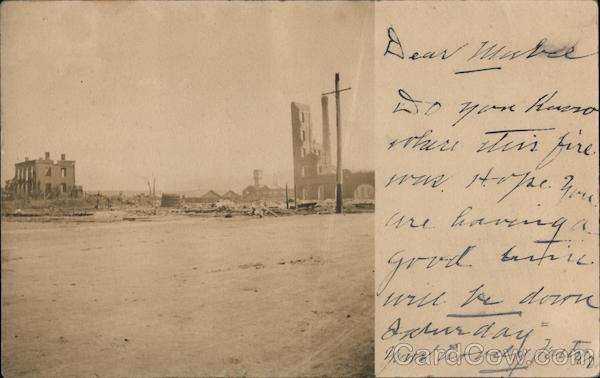 Dear Mabel
Do you know
where this fire
was. Hope you
are having a
good time
will be down
Saturday
CardCow.com